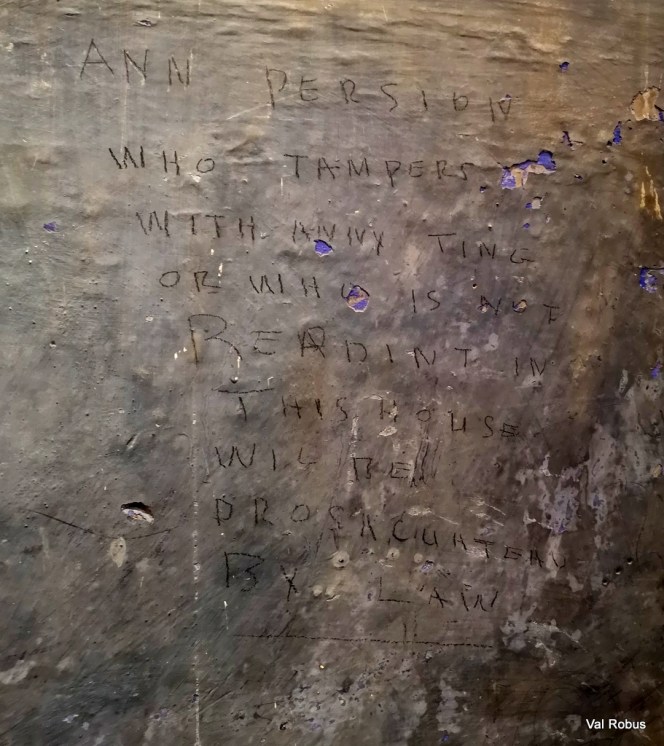 ANN PERSION
WHO TAMPERS
WITH ANNY TING
OR WHO IS NOT
READINT IN
THIS HOUSE
WIL BE
PROSACUATEAD
BY LAW
Val Robus